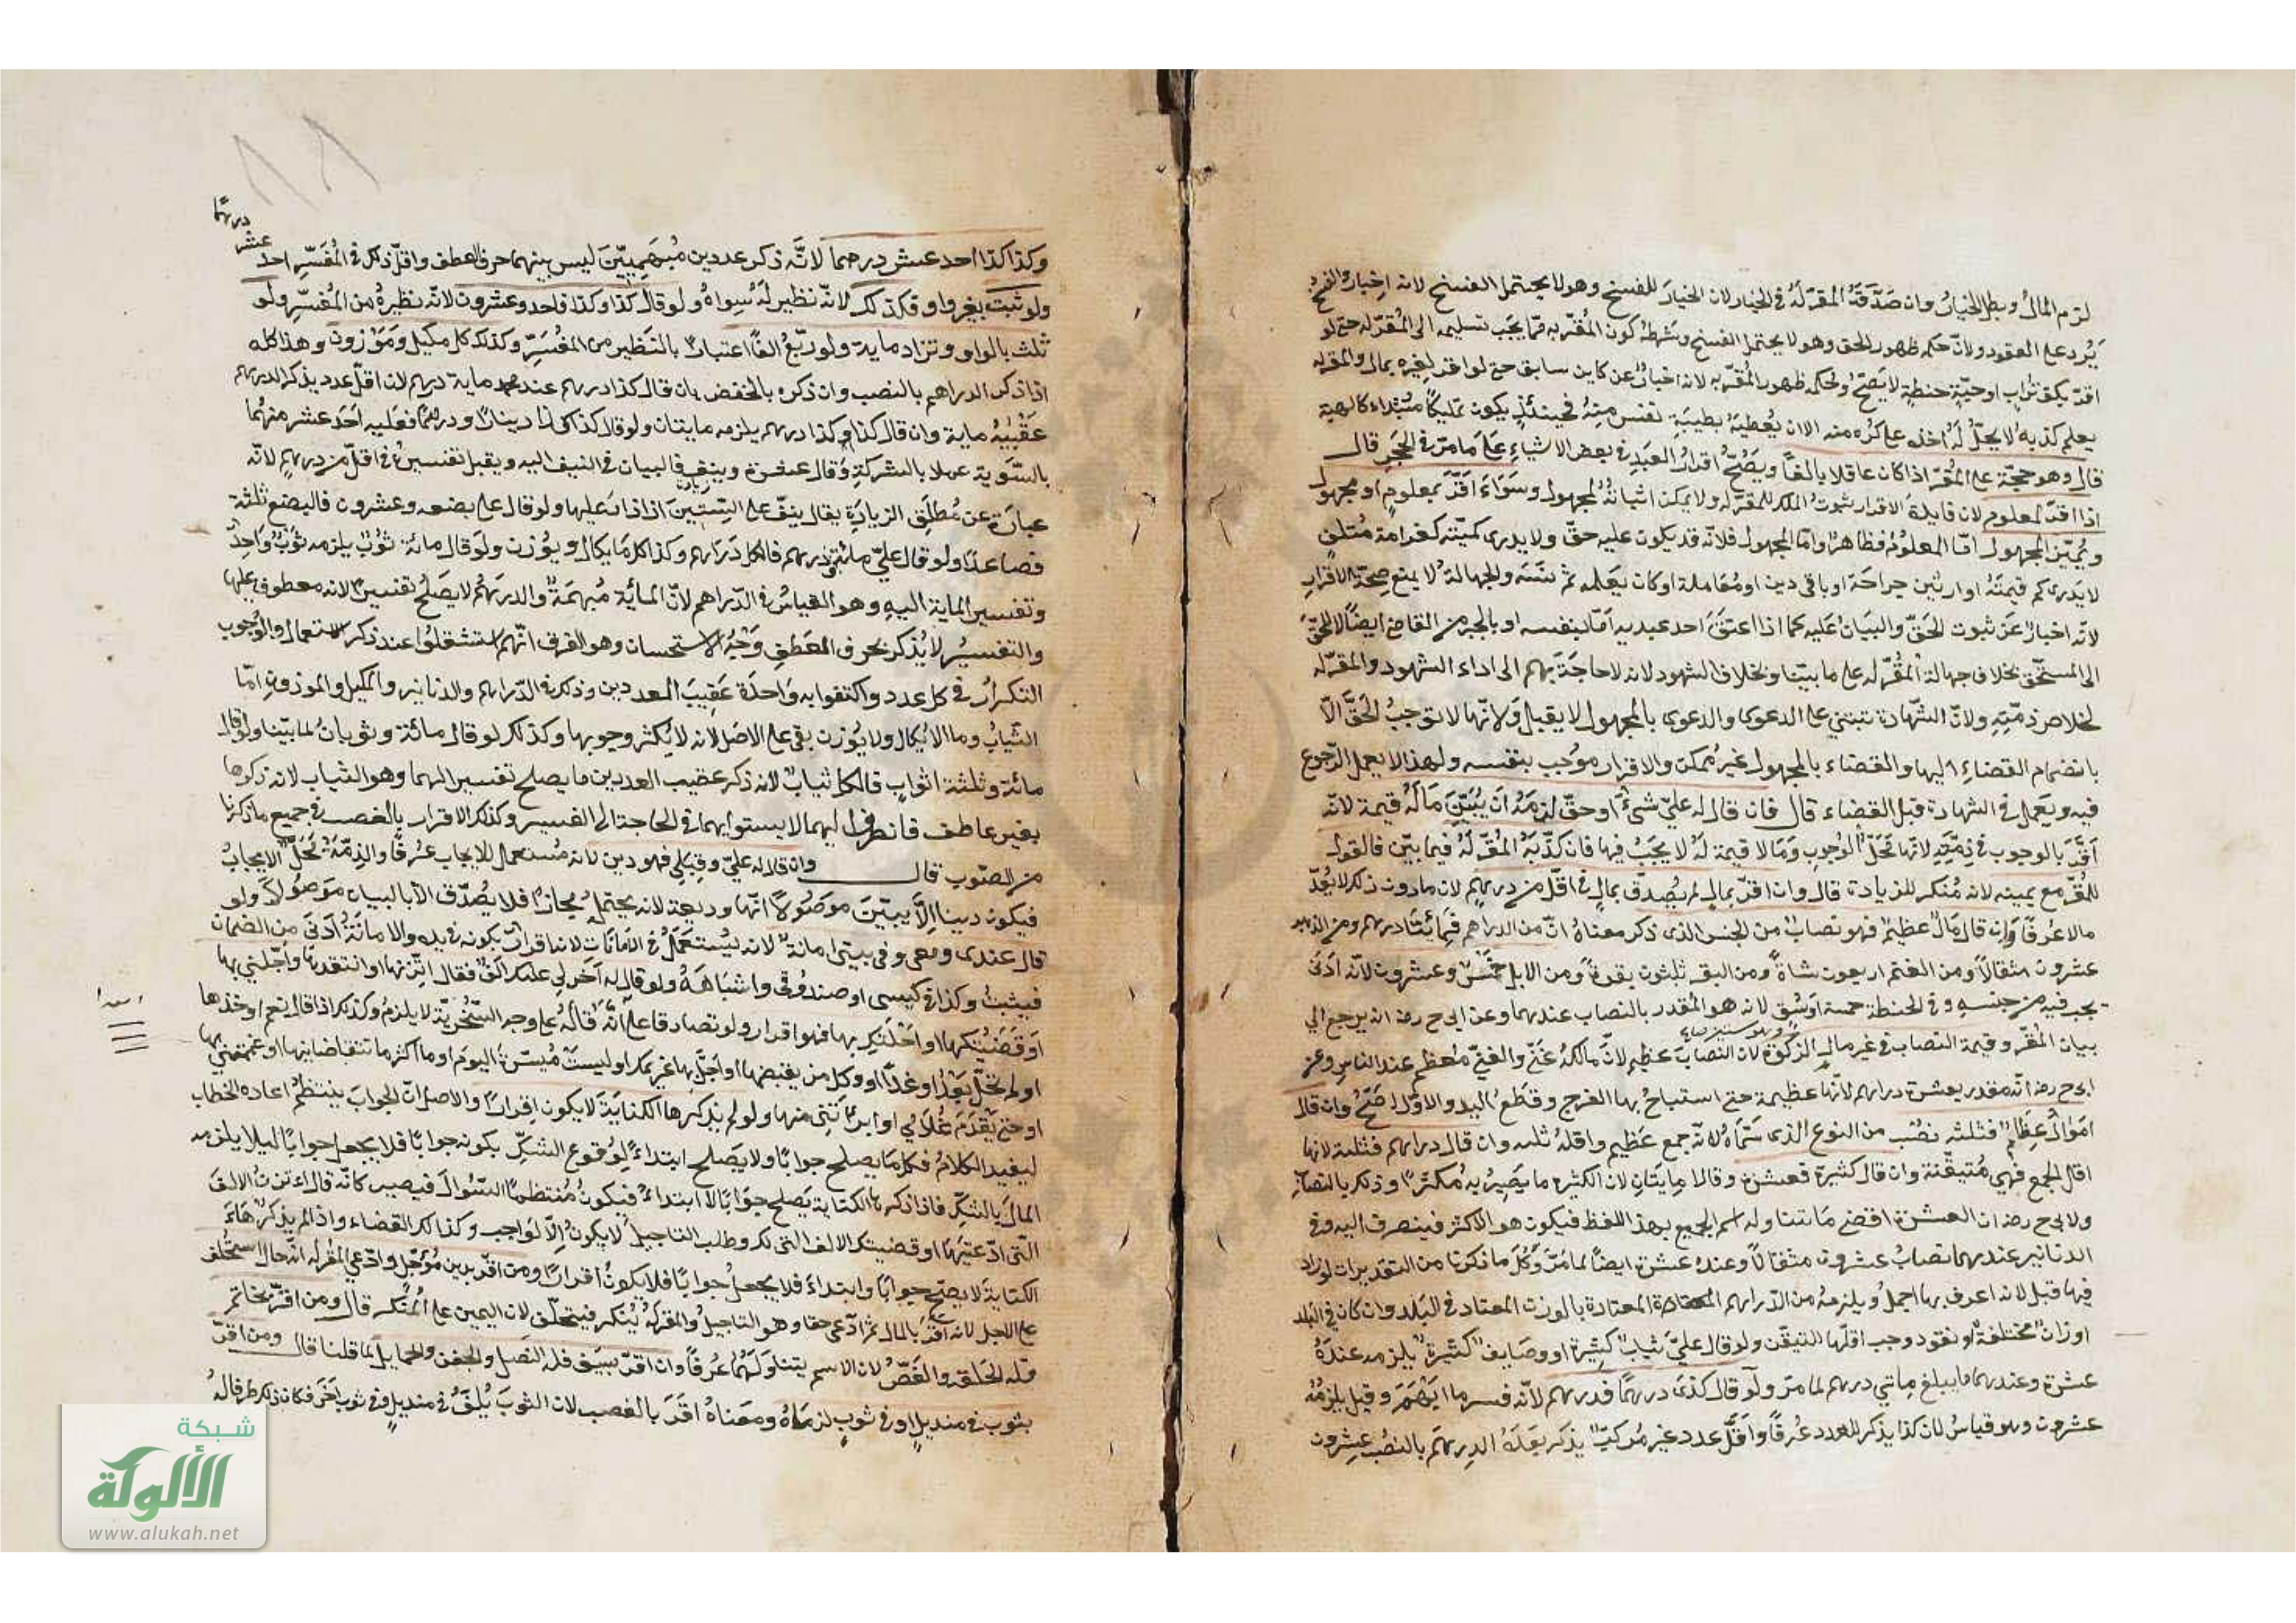 لزم المال وبطل الخيار وان صدّقة المقرّ له في الخيار لان الخيار للفسخ وهو لا يحتمل الفسخ لانه اخبار والفسخ
يَرد على العقود ولانّ حكمه ظهور الحق وهو لا يحتمل الفسخ وشرطه كون المُقَرّ به ممّا يجب تسليمه الى المُقرّ له حتى لو
اقرّ بكفّ تراب او حبّة حنطة لا يَصحّ وحكمه ظهور المُقرّ به لانه اخبارٌ عن كاين سابق حتى لو اقرّ لغيره بمال والمقر له
يعلم كذبه لا يحلّ له اخذه على كره منه الا ان يُعطيَهُ بطيبَة نفس مِنهُ فحينئذٍ يكون تمليكًا مُبتداء كالهبة
قال وهو حجّة على المُقرّ اذا كان عاقلا بالغًا ويَصُحّ اقرارُ العَبدِ في بعض الاشياءِ عَلى مَا مرّ في الحَجَر قال
اذا اقرّ لمعلوم لان فايدة الاقرار ثبوت الملك للمقرّ له ولا يمكن اثباته لمجهول وسَوَاءَ اقَرّ بمعلومٍ او بمجهول
ويُبيّن المجهول امّا المعلومُ فظاهر وامّا المجهول فلانّه قد يكون عليه حقّ ولا يدرى كميّته كغرامة مُتلفٍ
لا يَدرى كم قيمتُه او ارش جراحَة او باقى دين او مُعَاملة او كان يَعلمه ثم نسَيَه والجهالة لا يمنع صِحّة الاقرار
لانّه اخبارٌ عَن ثبوت الحَقّ والبيَانُ عَليه كما اذا اعتَقَ احد عبديه امّا بنفسه او بالجبر من القاضى ايصَالا للحَقّ
الى المستحّق بخلاف جهالة المُقرّ له على ما بيّنا وبخلاف الشهود لانه لا حاجَة بهم الى اداء الشهود والمقرّ له
لخلاص ذمّتِهِ ولانّ الشّهادة تبتنى على الدعوى والدعوى بالمجهول لا يقبل وَلانّها لا توجبُ الحَقَّ الّا
بانضمام القضاءِ اليها والقضاء بالمجهول غير مُمكن والاقرار مُوجب بنفسه ولهذا لا يعمل الرّجوع
فيه ويَعمل في الشهادة قبل القضاء قال فان قال له عليّ شىءٌ او حقّ لزمَهُ اَن يُبَيّنَ مَا لَهُ قيمة لانّه
اَقَرَّ بالوجوب في ذِمّتِهِ لانّها مَحَلّ الوُجوبِ وَمَا لا قيمة لهُ لا يَجبُ فيها فان كذّبَهُ المُقرّ لهُ فيما بيّن فالقول
للمُقرّ مع يمينه لانه مُنكر للزيادة قال وان اقرّ بمالٍ لم يُصدّق بمالٍ في اقلّ من درهمٍ لان ما دون ذلك لا يُعدّ
مالا عُرفًا وَان قال مَالٌ عظيمٌ فهو نصابٌ من الجنس الذى ذكر معناهُ انّ من الدراهم فَمِائتَا درهم ومن الذهب
عشرون مثقالًا ومن الغنم اربعون شاةً ومن البقر ثلثون بقرةً ومن الابل خَمْسٌ وعشرون لانّه ادَنى
يجب فيه من جنسهِ وفي الحنطة خمسة اوسُقٍ لانه هو المُقدر بالنصاب عندهما وعن ابى ح رضه انه يرجع الى
بيان المقرّ وقيمة النصاب في غير مال الزكوة لان النصَابَ عظيم لانّ مالكهُ غَنىّ والغنىّ مُعظم عند الناس وعن
ابى ح رضه انّه مقدر بعشرة دراهم لانّها عظيمة حتى استباح بها الفرج وقَطَعَ اليد والاوّل اصَحّ وان قال
امَوالٌ عِظامٌ فثلثه نصُبٍ من النوع الذى سَمّاهُ لانّه جمع عَظيم واقلهُ ثلثه وان قال دراهم فثلثة لانها
اقل الجمع فهى مُتيقّنة وان قال كثيرة فعشرة وقالا مِايتَانِ لان الكثيره ما يَصِيرُ بِه مُكثرًا وذلك بالنصابِ
ولابى ح رضه ان العشرة اقصى مَا يتناوله اسم الجميع بهذا اللفظ فيكون هو الاكثر فينصرف اليه وفي
الدنانير عندهما نصابُ عشرون مثقالًا وعندهُ عشرة ايضًا لما مَرّ وَكُل ما ذكرنا من التقديرات لو زاد
فيها قبل لانه اعرف بها اجمل ويلزمهُ من الدّراهم المعتادة بالوزن المعتاد في البَلد وان كان في البَلد
اوزانٌ مختلفةٌ او نقود وجب اقلّها للتيقّن ولو قال عليّ ثيابٌ كثيرة او وصَايف كثيرةٌ يلزمه عندَهُ
عشرة وعندهما ما يبلغ مِاتي درهم لما مرّ ولَو قال كذَى درهمًا فدرهم لانّه فسر ما ابهَمَ وقيل يلزمُهُ
عشرون وهو قياسُ لان كذا يذكر للعدد عُرفًا وَاَقَلّ عدد غير مُركبٍّ يذكر بَعدَهُ الدِرهَم بالنصُب عِشرون
درهمًا
عشر
وكذا كذا احد عشر درهما لانّه ذكر عددين مُبهَمِييّنَ ليس بينهما حرف العطف واقلّ ذلك في المُفَسّرِ احد
ولو ثلث بغير واو فكذلك لانّه نظير لهُ سِواهُ ولو قال كذا وكذا فاحد وعشرون لانّه نظيرهُ من المُفسّر ولو
ثلث بالواو وتزاد ماية ولو ربّعَ الفًا اعتبارٌ بالنَظير من المفُسَرِّ وكذلك كل مكيل ومَوْزون وهذا كله
اذا ذكر الدراهم بالنصب وان ذكره بالخفض بان قال كذا درهم عند محمد ماية درهم لان اقلّ عدد يذكر الدرهم
عَقيبَهُ ماية وان قال كذا وكذا درهم يلزمه مايتان ولو قال كذا كذا دينارٌ ودرهمًا فعَليه اَحَد عشر منهُمَا
بالسّوية عملا بالشركة وَقال عشرة ونيف فالبيان في النيف اليه ويقبل تفسيرهُ في اقلّ من درهم لانّه
عبارَة عن مُطلَق الزيادَة يقال نيفّ على السّتينَ اذا زادَ عليها ولو قال على بضعه وعشرون فالبضع ثلثة
فصاعدًا ولو قال عليّ مائةٌ ودرهم فالكل دَرَاهم وكذا كلّ مَا يكال ويُوزن ولَو قال مائة وثوْبٌ يلزمه ثوَبٌ وَاحِدٌ
وتفسير الماية اليهِ وهو القياسُ في الدّراهم لانّ المائَة مُبهَمَةٌ والدرهَمُ لا يَصَلُح تفسيرًا لانه معطوف عليها
والتفسيُر لا يُذكر بحرف العَطفِ وَجْهُ الاستحسان وهو الفرق انّهم استثقلُوا عند ذكر استعمال والوُجوب
التكرارَ في كل عدد واكتفوا به وَاحدَة عَقِيبَ العددين وذكره الدّراهم والدنانير والمكيل والموزون امّا
الثّيابُ وما لا يُكال ولا يُوزن بقى على الاصل لانه لا يَكثر وجوبها وكذلك لو قال مائة وثوبانُ لما بيّنا ولو قال
مائة وثلثة اثوابٍ فالكل ثيابٌ لانه ذكر عقيب العددين ما يصلح تفسير الهما وهو الثياب لانه ذكرها
بغير عاطف فانصرف اليهما لا يستوايهما في الحاجة الى التفسير وكذلك الاقرار بالغصب في جميع ما ذكرنا
من الصنوب قال وان قال له عليّ وقِبَلي فهو دين لانه مُستعمل للايجاب عُرفًا والذِمّة مَحَلّ الايجابُ
فيكون دينا اِلاَّ يبيّنَ موَصُولًا انّها وديعة لانه يحتمل مجازًا فلا يصُدّق الا بالبيان موصُولا ولو
قال عندى ومعى وفى بيتى امانةٌ لانه يُستعمَل في الاَمَانَات لانه اقرارٌ بكونه في يده والامانَةُ اَدَنى من الضمان
فيثبتُ وكذا في كيسى او صندوُقى واشبَاهَهُ ولو قال له آخر لى عليك الفٌ فقال اتّزنها او انتقدها وأجّلنى بها
اَو قضَيْتُكها او احَلتك بها فهو اقرار ولو تصادقا على انّه قالهُ على وجه السّخريّة لا يلزم وكذلك اذا قال نعم او خذها
او لم تحلّ بَعدُ او غدًا او وكل من يقبضها او اجَلّ بها غريمك او ليستْ مُيسَرّةً اليوَم او ما اكثر ما تتقاضانيها او غممتنى بها
او حتى يَقدَم غُلامى او ابرأتنى منها ولو لم يذكرها الكنايَة لا يكون اقرارًا والاصل انّ الجوابَ ينتظم اعادة الخطاب
ليفيد الكلامُ فكل مَا يصلح جوابًا ولا يَصلح ابتداءً لِوُقوع الشكّ بكونه جوابًا فلا يجعل جوابًا ليلا يلزمه
المالَ بالشكّ فاذا ذكر ها الكناية يَصلح جوَابًا لا ابتداءً فيكونُ مُنتظمًا السّوالَ فيصير كانّه قال اتزنُ الالفَ
التّى ادّعَيتَها او قضيتك الالف التى لك وطلب التاجيل لا يكونُ اِلّا لوَاجب وكذا لك القضاء واذا لم يذكر هَاءَ
الكنايَة لا يصحّ جوابًا وابتداءً فلا يجعل جوابًا فلا يكونُ اقرارًا ومن اقرّ بدين مُوَجّل وادّعى المقرله انّه حالّ استحُلف
على الاجل لانه اقرّ بالمال ثم ادّعى حقا وهو التاجيلُ والمقرلهُ يُنكر فيتحلّف لان اليمين على المُنكر قال ومن اقرّ بخاتم
فله الحَلقه والفَصّ لان الاسم يتناوَلهُما عُرفًا وان اقرّ بسيَف فله النَصل والجفن والحمايل لما قلنا قال ومن اقرّ
بثوب في منديل او في ثوبٍ لزماهُ ومعَناهُ اقَرّ بالغصب لان الثوبَ يُلفّ في منديل وفي ثوب آخَر فكان ذلك ظرفا لهُ
شبكة
الألوكة
www.alukah.net